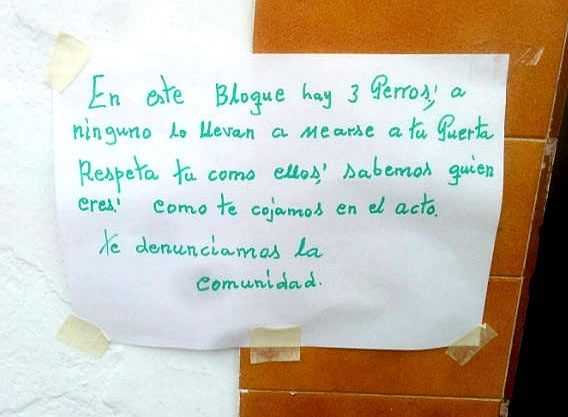 En este Bloque hay 3 Perros; a
ninguno lo llevan a mearse a tu Puerta
Respeta tu como ellos; sabemos quien
eres; como te cojamos en el acto.
te denunciamos la
comunidad.